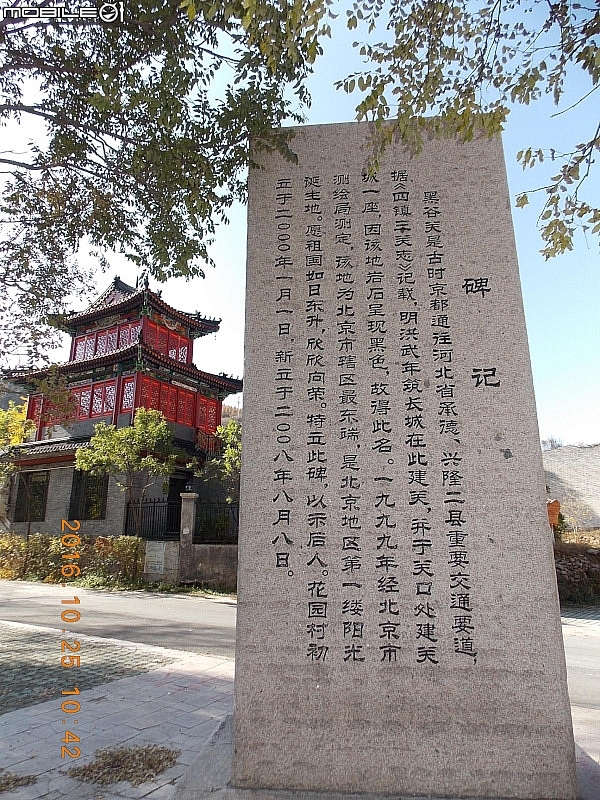 mobile01
碑记
黑谷关是古时京都通往河北省承德、兴隆二县重要交通要道,
据《四镇三关志》记载,明洪武年筑长城在此建关,并于关口处建关
城一座,因该地岩石呈现黑色,故得此名。一九九九年经北京市
测绘局测定,该地为北京市辖区最东端,是北京地区第一缕阳光
诞生地。愿祖国如日东升,欣欣向荣。特立此碑,以示后人。花园村初
立于二000年一月一日,新立于二00八年八月八日。
2016 10 25 10:42